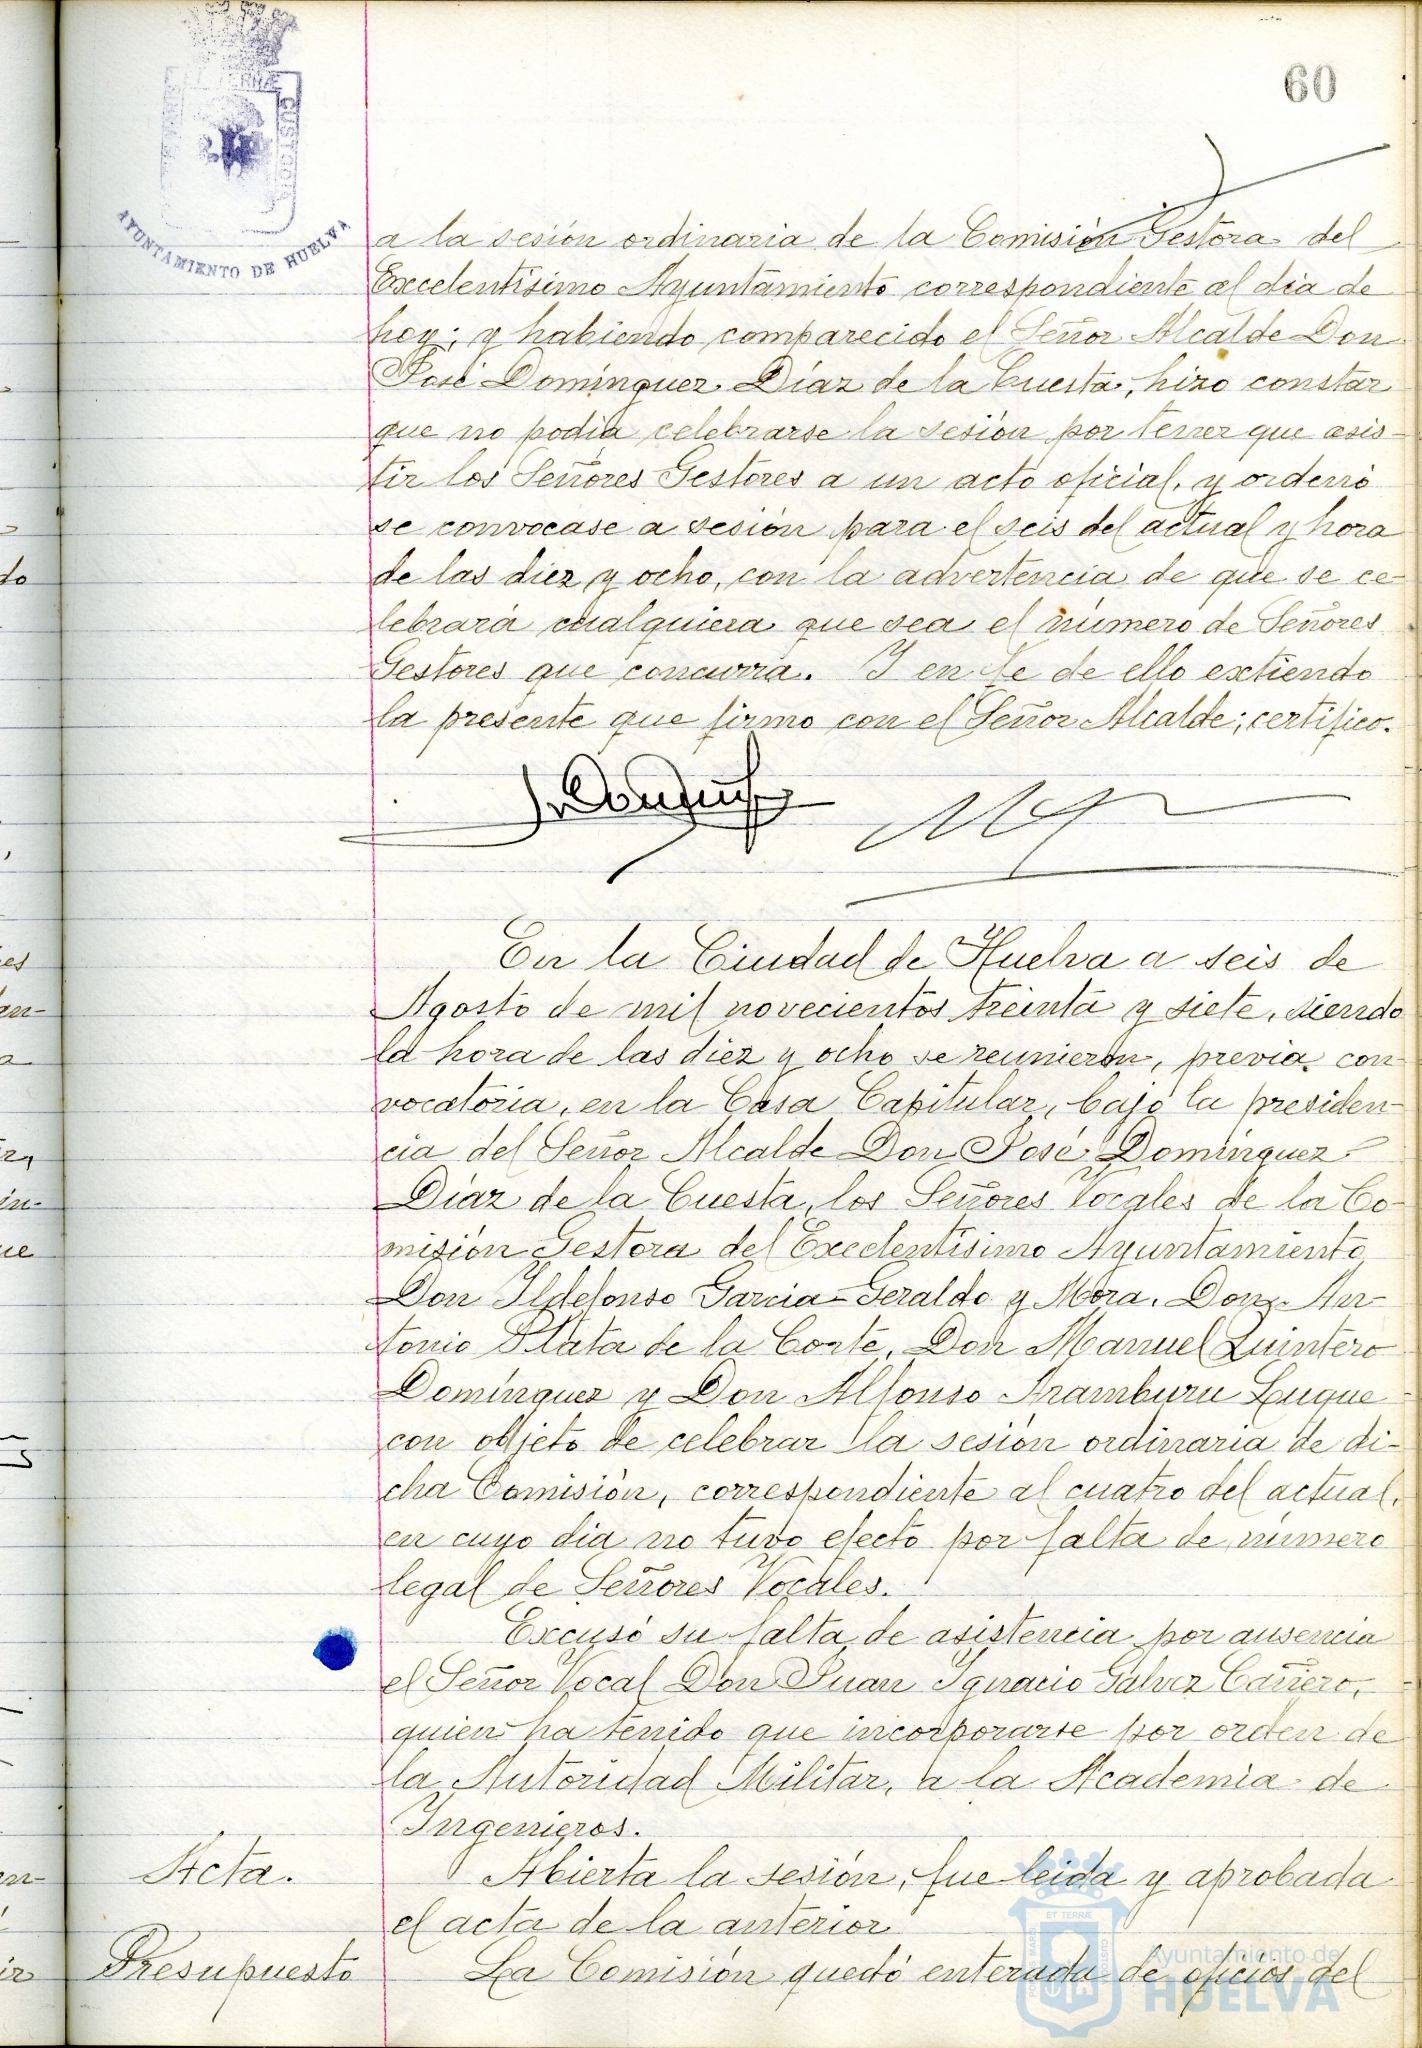 60
ET TERRÆ CUSTODIA
AYUNTAMIENTO DE HUELVA
a la sesión ordinaria de la Comisión Gestora del
Excelentísimo Ayuntamiento correspondiente al día de
hoy; y habiendo comparecido el Señor Alcalde Don
José Domínguez Díaz de la Cuesta, hizo constar
que no podía celebrarse la sesión por tener que asis-
tir los Señores Gestores a un acto oficial, y ordenó
se convocase a sesión para el seis del actual y hora
de las diez y ocho, con la advertencia de que se ce-
lebrará cualquiera que sea el número de Señores
Gestores que concurra. Y en fe de ello extiendo
la presente que firmo con el Señor Alcalde; certifico.
En la Ciudad de Huelva a seis de
Agosto de mil novecientos treinta y siete, siendo
la hora de las diez y ocho se reunieron, previa con-
vocatoria, en la Casa Capitular, bajo la presiden-
cia del Señor Alcalde Don José Domínguez
Díaz de la Cuesta, los Señores Vocales de la Co-
misión Gestora del Excelentísimo Ayuntamiento
Don Ildefonso Garcia-Geraldo y Mora, Don An-
tonio Plata de la Corte, Don Manuel Quintero
Domínguez y Don Alfonso Aramburu Luque
con objeto de celebrar la sesión ordinaria de di-
cha Comisión, correspondiente al cuatro del actual,
en cuyo día no tuvo efecto por falta de número
legal de Señores Vocales.
Excusó su falta de asistencia por ausencia
el Señor Vocal Don Juan Ignacio Gálvez Cañero,
quien ha tenido que incorporarse por orden de
la Autoridad Militar, a la Academia de
Ingenieros.
Acta.
Abierta la sesión, fue leida y aprobada
el acta de la anterior
Presupuesto
La Comisión quedó enterada de oficios del
Ayuntamiento de
HUELVA